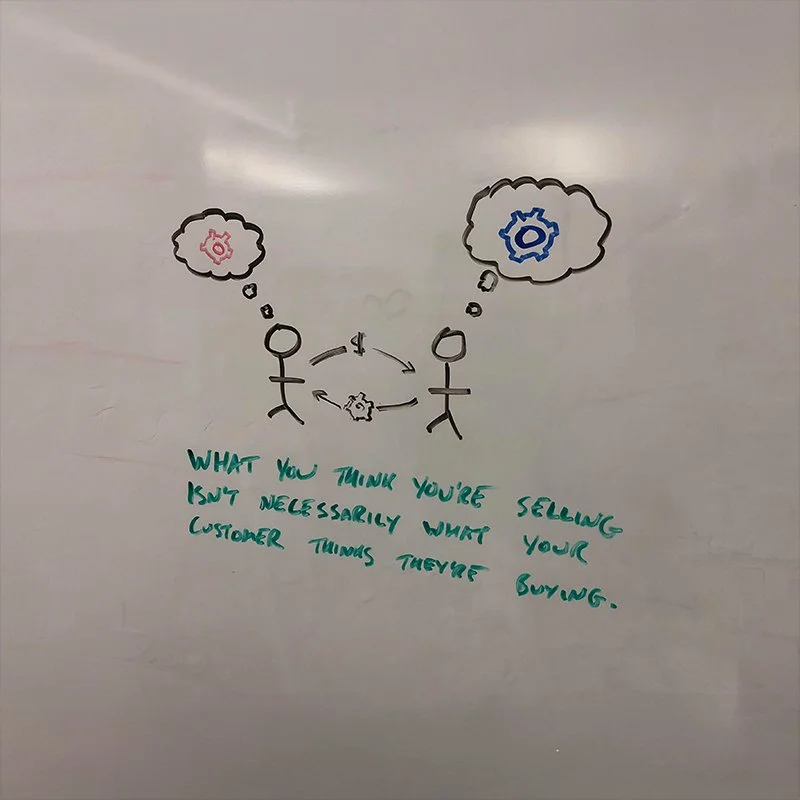 $
WHAT YOU THINK YOU'RE SELLING
ISN'T NECESSARILY WHAT YOUR
CUSTOMER THINKS THEY'RE BUYING.